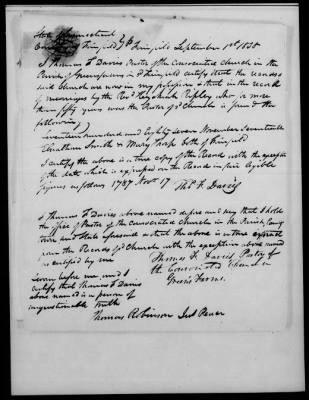 State of Connecticut
County of Fairfield Ss Fairfield September 1st 1838
I Thomas F Davies Pastor of the Consociated Church in the
Parish of Greensfarms in Fairfield certify that the records
said Church are now in my possession & that in the record
marriages by the Rev Hezekiah Ripley who is more
than fifty years was the Pastor of sd Church is found the
following
Seventeen hundred and Eighty Seven November Seventeenth
Smith & Mary both of Fairfield
I certify the above is a true copy of the Record with the exception
of the date which is expressed on the Record in fair legible
figures as follows 1787 Nov 17 Thos F. Davies
I Thomas F Davies above named depose and say that I hold
the office of Pastor of the Consociated Church in the Parish
and State aforesaid & that the above is a true
from the Records of sd Church with the exception above named
as certified by me
Thomas F. Davies Pastor of
the Consociated Church in
Greens Farms.
Sworn before me and I
certify that Thomas F Davies
above named is a person of
unquestionable truth
Thomas Robinson Just Peace